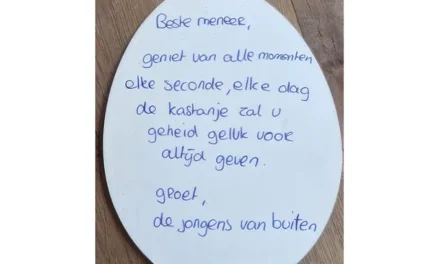 Beste meneer,
geniet van alle momenten
elke seconde, elke dag
de kastanje zal u
geheid geluk voor
altijd geven.
groet,
de jongens van buiten